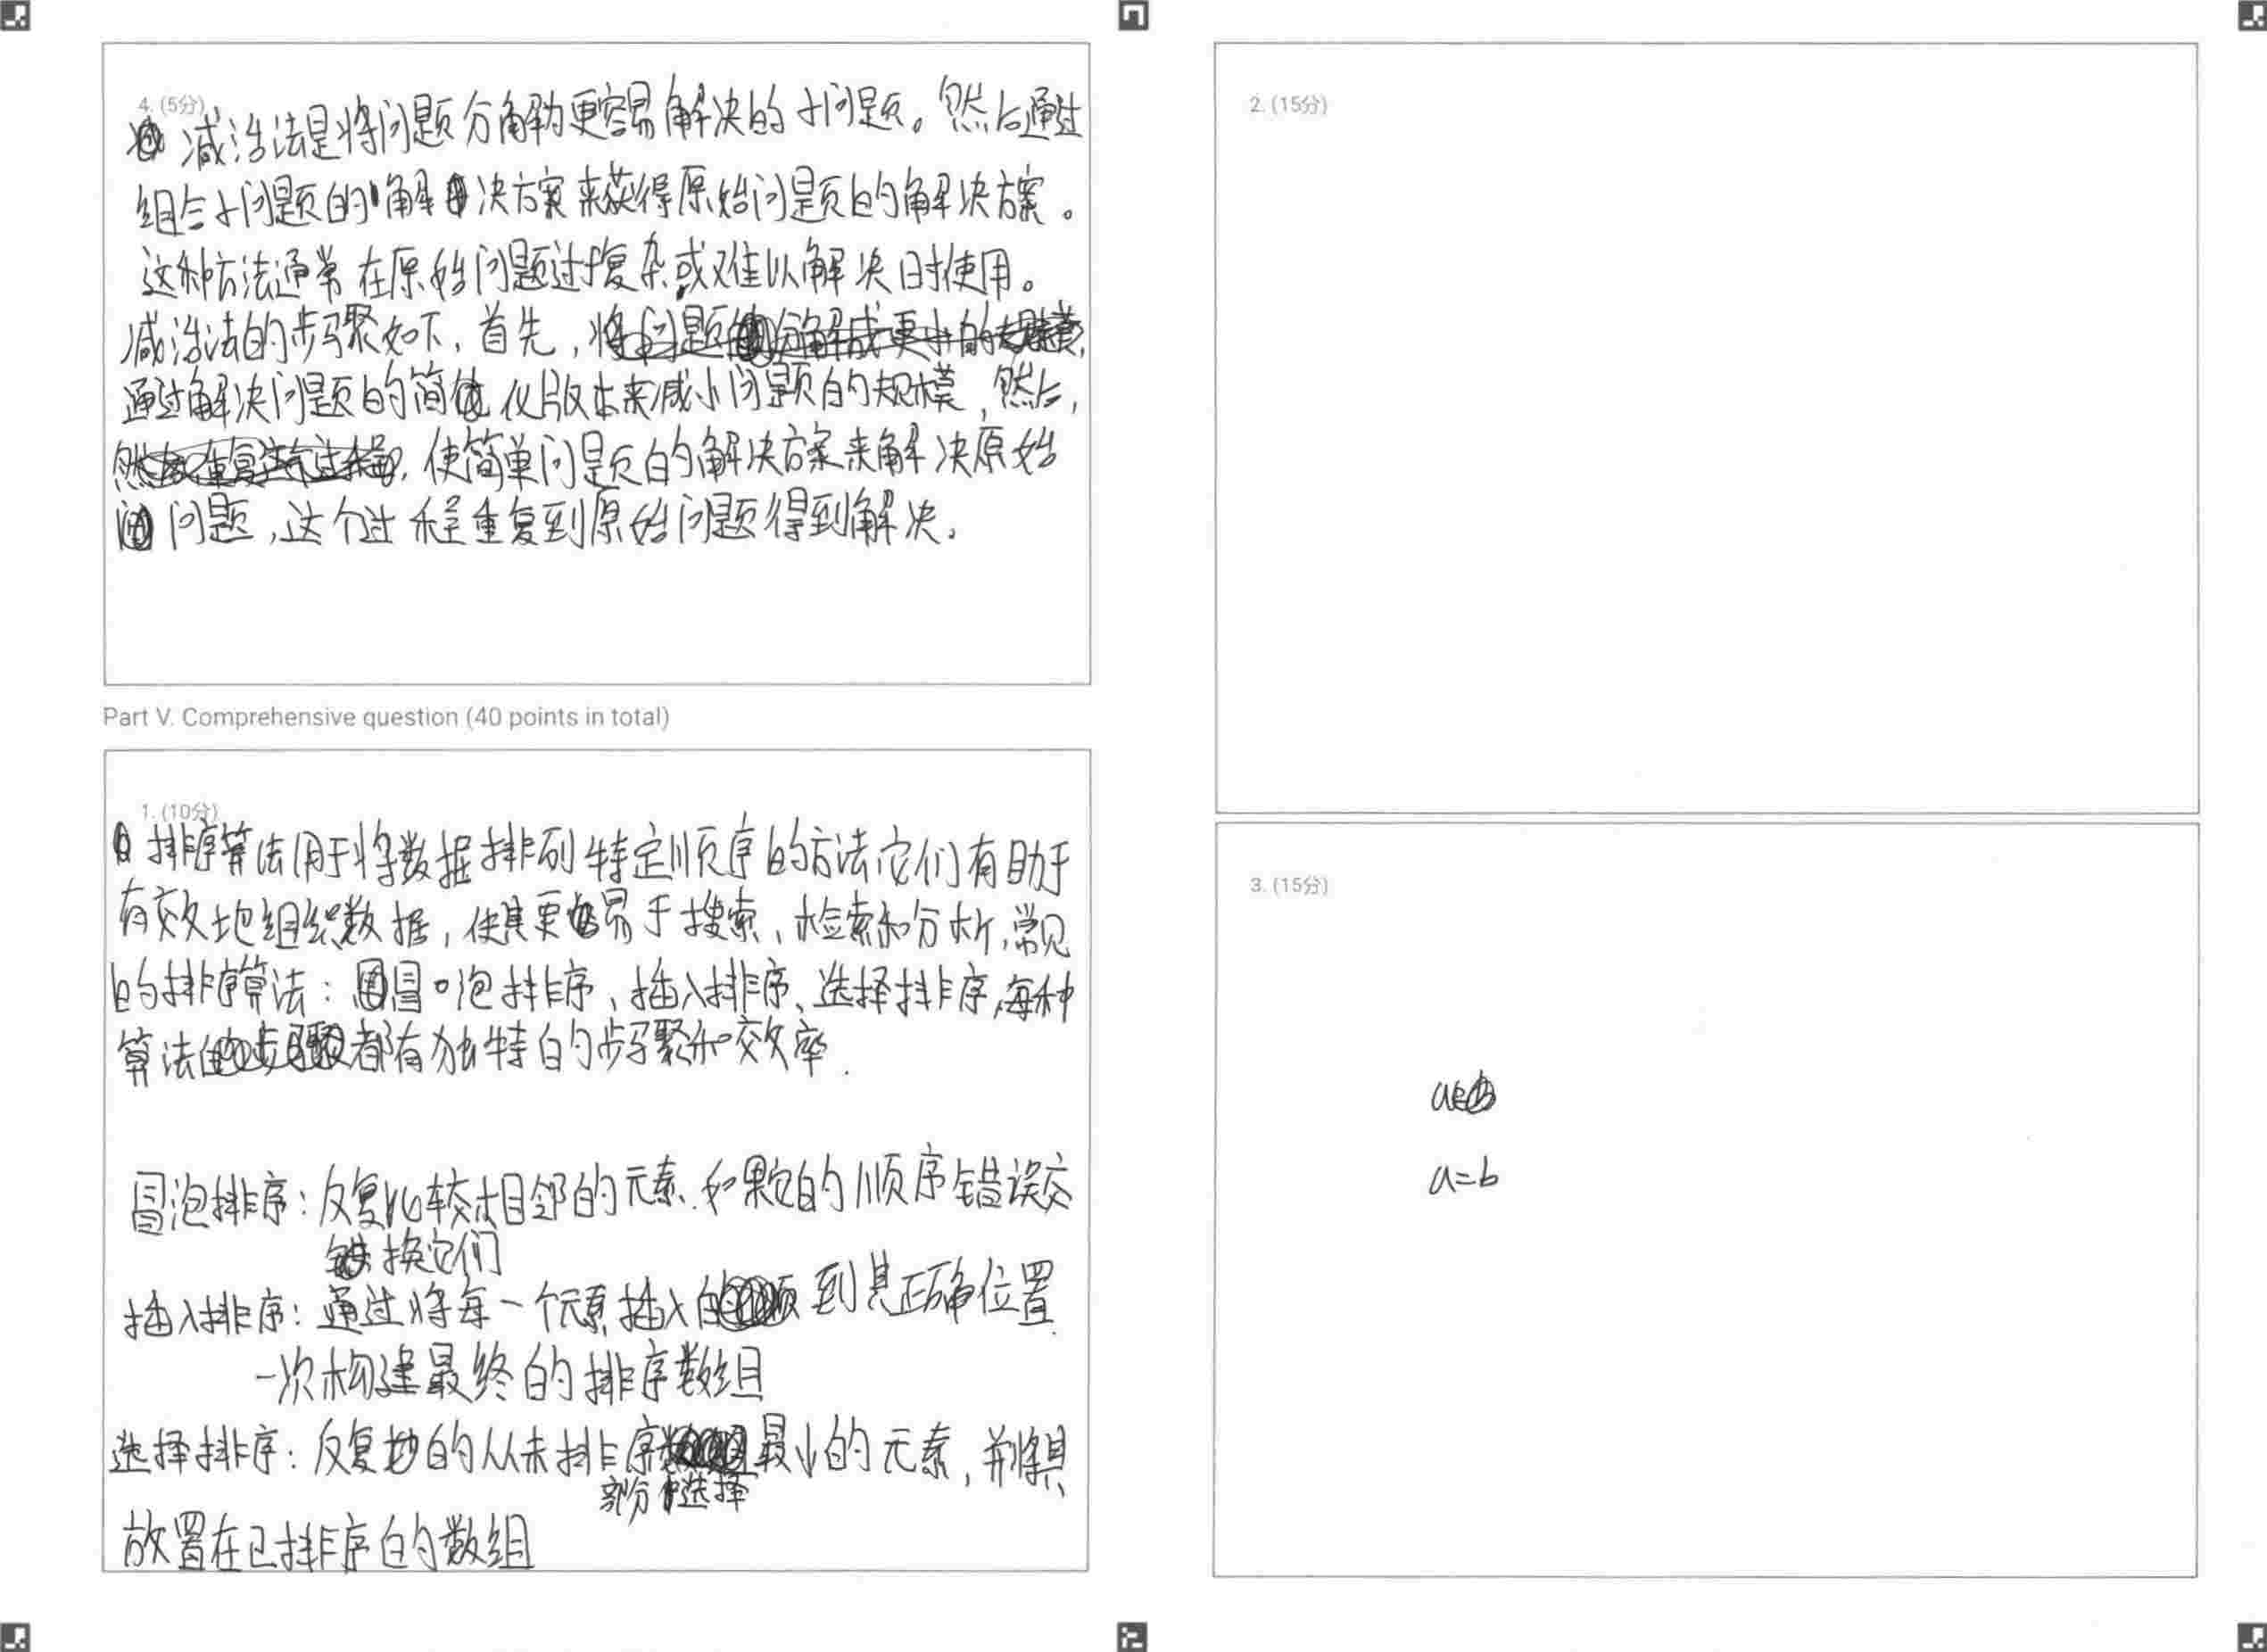 4. (5分)
减治法是将问题分解为更容易解决的子问题。然后通过
组合子问题的解决方案来获得原始问题的解决方案。
这种方法通常在原始问题过于复杂或难以解决时使用。
减治法的步骤如下,首先,将问题分解成更小的规模,
通过解决问题的简化版本来减小问题的规模,然后,
使简单问题的解决方案来解决原始
问题,这个过程重复到原始问题得到解决。
Part V. Comprehensive question (40 points in total)
1. (10分)
排序算法用于将数据排列特定顺序的方法它们有助于
有效地组织数据,使其更易于搜索,检索和分析,常见
的排序算法:冒泡排序、插入排序、选择排序,每种
算法的步骤都有独特的步骤和效率.
冒泡排序:反复比较相邻的元素.如果它的顺序错误交
换它们
插入排序:通过将每一个元素插入到其正确位置
一次构建最终的排序数组
选择排序:反复的从未排序最小的元素,并将其
部分中选择
放置在已排序的数组
2. (15分)
3. (15分)
a=b